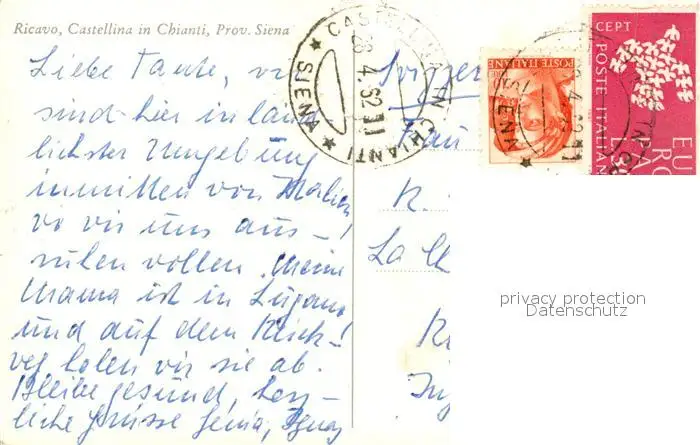 Ricavo, Castellina in Chianti, Prov. Siena
Liebe Tante, wir
sind hier in länd
lichster Umgebung
inmitten von Italien
wo wir uns aus-
ruhen wollen. Meine
Mama ist in Lugano
und auf dem Rück-
weg holen wir sie ab.
Bleibe gesund, herz-
liche Grüsse
CASTELLINA IN CHIANTI
SIENA
28.4.62
Svizzera
Frau
K.
La Ch
POSTE ITALIANE
LIRE
SIENA
CEPT
POSTE ITALIANE
EUROPA
privacy protection
Datenschutz